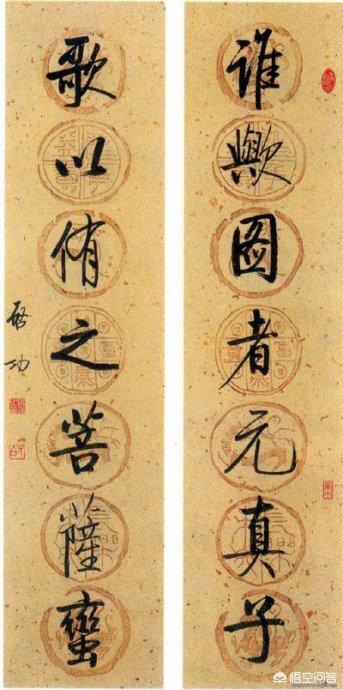 谁欤图者元真子
歌以侑之菩萨蛮
启功
悟空问答